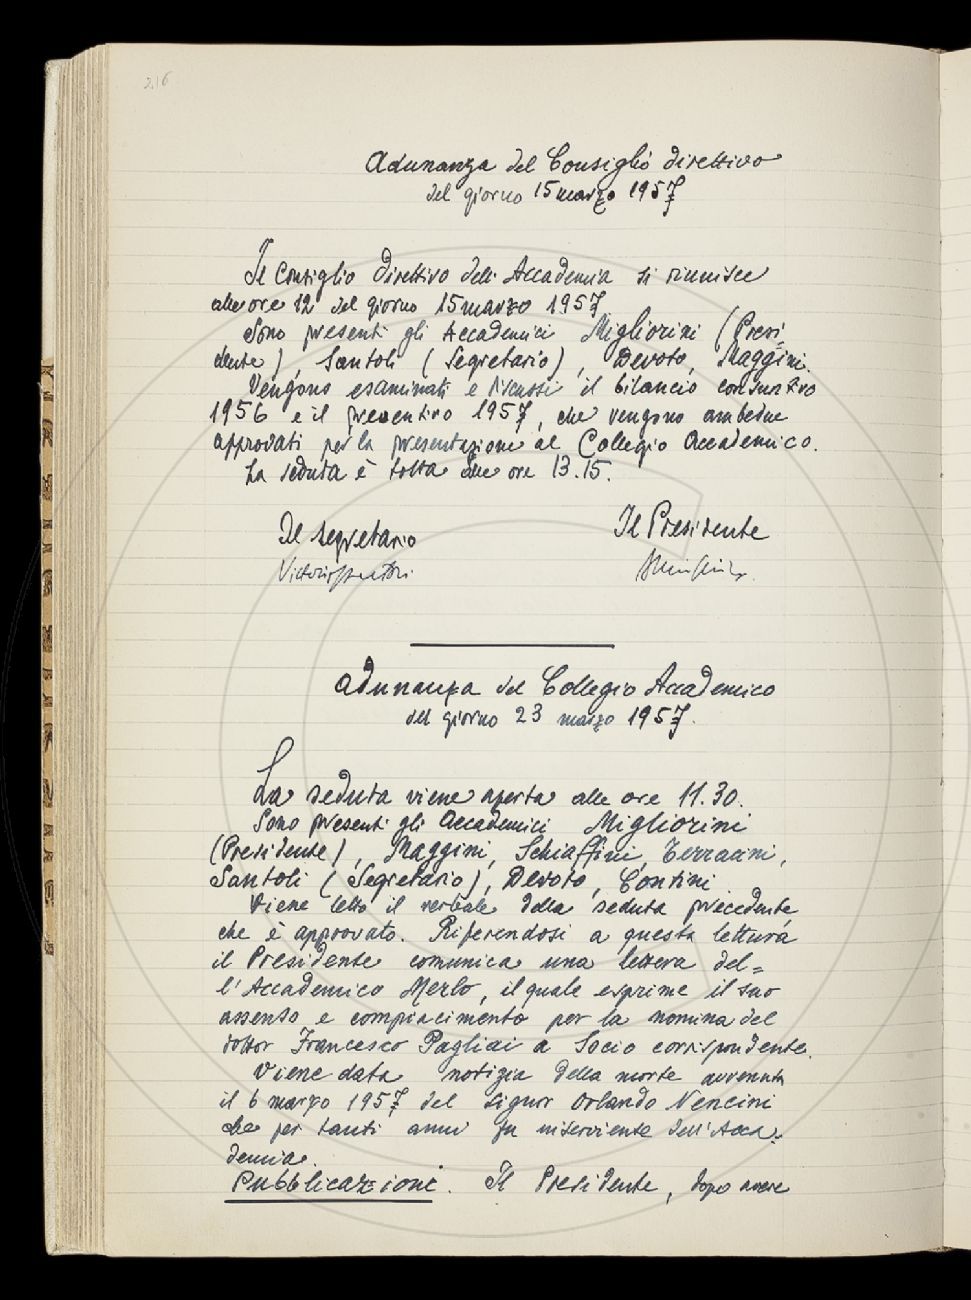 216
Adunanza del Consiglio direttivo
del giorno 15 marzo 1957
Il Consiglio Direttivo dell'Accademia si riunisce
alle ore 12 del giorno 15 marzo 1957
Sono presenti gli Accademici Migliorini (Presi-
dente), Santoli (Segretario), Devoto, Maggini.
Vengono esaminati e discussi il bilancio consuntivo
1956 e il preventivo 1957, che vengono ambedue
approvati per la presentazione al Collegio Accademico.
La seduta è tolta alle ore 13.15.
Il Segretario
Il Presidente
Vittorio Santoli
Adunanza del Collegio Accademico
del giorno 23 marzo 1957.
La seduta viene aperta alle ore 11.30.
Sono presenti gli Accademici Migliorini
(Presidente), Maggini, Schiaffini, Terracini,
Santoli (Segretario), Devoto, Contini.
Viene letto il verbale della seduta precedente,
che è approvato. Riferendosi a questa lettura
il Presidente comunica una lettera del=
l'Accademico Merlo, il quale esprime il suo
assenso e compiacimento per la nomina del
dottor Francesco Pagliai a Socio corrispondente.
Viene data notizia della morte avvenuta
il 6 marzo 1957 del signor Orlando Nencini
che per tanti anni fu inserviente dell'Acca-
demia.
Pubblicazioni. Il Presidente, dopo avere